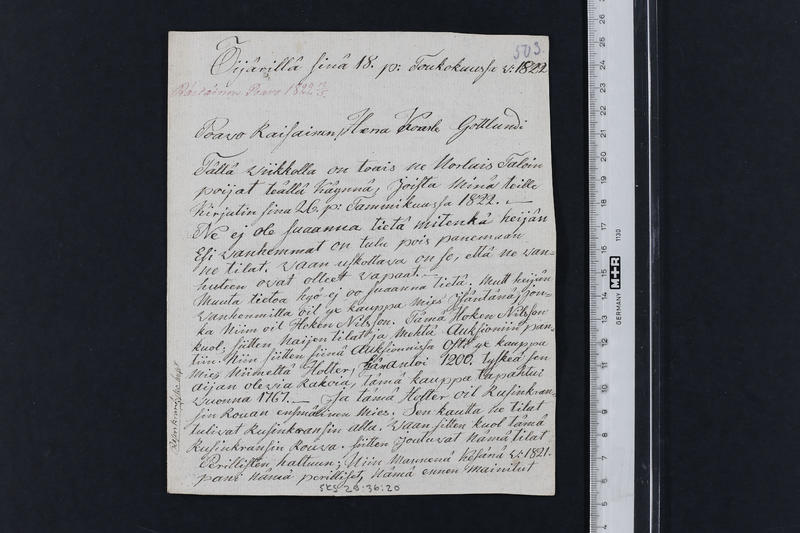 503.
Öijärillä sinä 18. p: Toukokuussa v: 1822
Räisäinen Paavo 1822 18/5
Poavo Raisainen, Herra Koarle Gottlundi
Tällä viikkolla on toais ne Norluis Taloin
poijat teällä käynnä, joista minä teille
kirjutin sinä 26. p: Tammikuussa 1822. —
Ne ej ole suaanna tietä mitenkä heijän
Esi vanhemmat on tulu pois panemaan
ne tilat. vaan uskottava on se, että ne van-
huteen ovat olleet vapaat. —
Muuta tietoa hyö ej oo suaanna tietä. Mutt heijän
vanhemmilta oil yx kauppa mies isäntänä, jon-
ka Niim oil Hoken Nilsson. Tämä Hoken Nilsson
kuol; siitten Naijen tilat ja Mehtä Auksioniin pan-
tiin. Niin siitten siinä Auksionnissa Osti yx kauppa
Mies Niimeltä Holter, hän antoi 1200. tyskeä sen
aijan olevia Rahoia, tämä kauppa tapahtui
vuonna 1767. — Ja tämä Holter oil Rusinkran-
sin Rouan ensmäinen Mies; Sen kautta ne tilat
tulivat Rusinkransin alla. Vaan sitten kuol tämä
Rusinkransin Rouva. siitten joutuvat Nämä tilat
Perillisten haltuun; Niin Mannenä kesänä v: 1821.
pani Nämä perilliset, Nämä ennen mainitut
SKS 29:36:20
GERMANY M+R 1130